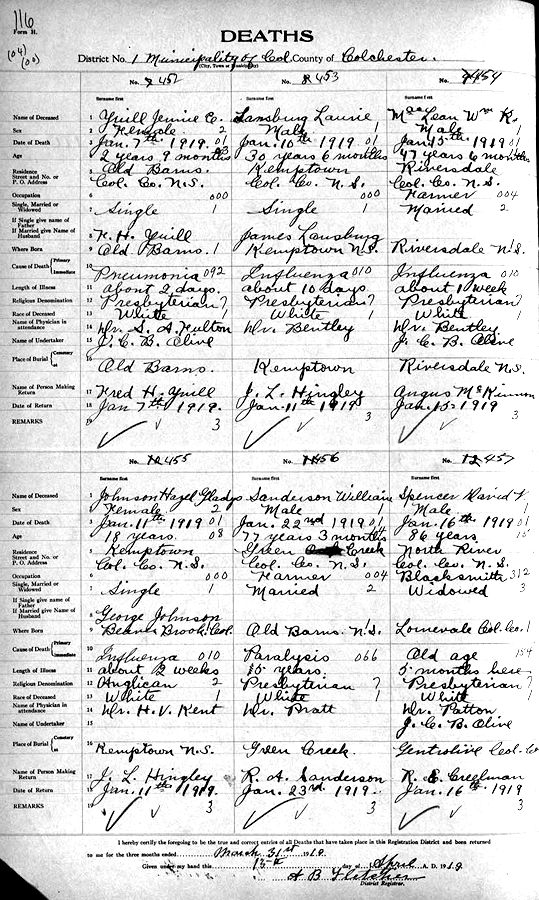 116
Form H.
(04)
(00)
DEATHS
District No. 1 Municipality of Col. County of Colchester.
(City, Town or Municipality)
No. 452 No. 453 454
Surname first Surname first Surname first
Name of Deceased 1 Yuill Jennie Lansburg Laurie MacLean Wm K.
Sex 2 Female 2 Male 1 Male 1
Date of Death 3 Jan. 7th 1919 01 Jan. 10th 1919 01 Jan. 15th 1919 01
Age 4 2 years 9 months 30 years 6 months 47 years 6 months
Residence 5 Old Barns Kemptown Riversdale
Street and No. or P. O. Address Col. Co. N.S. Col. Co. N.S. Col. Co. N.S.
Occupation 6 000 000 Farmer 004
Single, Married or Widowed 7 Single 1 Single 1 Married 2
If Single give name of Father
If Married give Name of Husband 8 F. H. Yuill James Lansburg
Where Born 9 Old Barns. 1 Kemptown N.S. Riversdale N.S.
Cause of Death Primary Immediate 10 Pneumonia 092 Influenza 010 Influenza 010
Length of Illness 11 about 2 days. about 10 days about 1 week
Religious Denomination 12 Presbyterian 7 Presbyterian 7 Presbyterian 7
Race of Deceased 13 White 1 White 1 White 1
Name of Physician in attendance 14 Dr. S. A. Fulton Dr. Bentley Dr. Bentley
Name of Undertaker 15 J. C. B. Olive J. C. B. Olive
Place of Burial Cemetery at 16 Old Barns. Kemptown Riversdale N.S.
Name of Person Making Return 17 Fred H. Yuill J. L. Hingley Angus McKinnon
Date of Return 18 Jan 7th 1919. Jan. 11th 1919 Jan. 15 1919
REMARKS 19 ✓ 3 ✓ 3 ✓ 3
No. 455 No. 456 No. 457
Surname first Surname first Surname first
Name of Deceased 1 Johnson Hazel Gladys Sanderson William Spencer David
Sex 2 Female 2 Male 1 Male 1
Date of Death 3 Jan. 11th 1919 01 Jan. 22nd 1919 01 Jan. 16th 1919 01
Age 4 18 years 08 77 years 3 months 86 years
Residence 5 Kemptown Green Creek North River
Street and No. or P. O. Address Col. Co. N.S. Col. Co. N.S. Col. Co. N.S.
Occupation 6 000 Farmer 004 Blacksmith 312
Single, Married or Widowed 7 Single 1 Married 2 Widowed 3
If Single give name of Father
If Married give Name of Husband 8 George Johnson
Where Born 9 Beaver Brook, Col. Old Barns N.S. Col. Co. 1
Cause of Death Primary Immediate 10 Influenza 010 Paralysis 066 Old age 154
Length of Illness 11 about 2 weeks 15 years. 5 months here
Religious Denomination 12 Anglican 2 Presbyterian 7 Presbyterian 7
Race of Deceased 13 White 1 White 1 White 1
Name of Physician in attendance 14 Dr. H. V. Kent Dr. Pratt Dr. Patton
Name of Undertaker 15 J. C. B. Olive
Place of Burial Cemetery at 16 Kemptown N.S. Green Creek. Col. Co
Name of Person Making Return 17 J. L. Hingley R. A. Sanderson R. E. Creelman
Date of Return 18 Jan. 11th 1919 Jan. 23rd 1919. Jan. 16th 1919
REMARKS 19 ✓ 3 ✓ 3 ✓ 3
I hereby certify the foregoing to be the true and correct entries of all Deaths that have taken place in this Registration District and been returned
to me for the three months ended March 31st 1919
Given under my hand this day of April A. D. 1919
A B Fletcher
District Registrar.